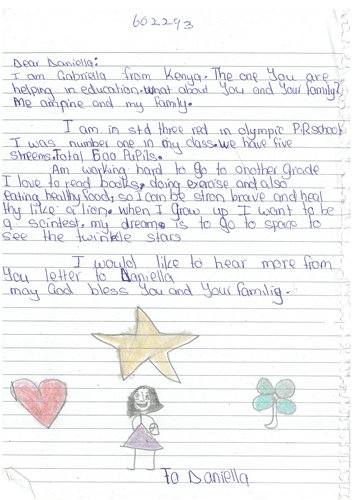 602293
Dear Daniella:
I am Gabriella from Kenya. The one you are
helping in education. what about you and your family?
Me am pine and my family.
I am in std three red in olympic P.R school
I was number one in my class. we have five
streems. Total 800 PuPils.
Am working hard to go to another Grade
I love to read books, doing exercise and also
eating healthy food, so I can be stron brave and heal
thy like a lion. when I Grow up I want to be
a scintest. my dreams is to go to space to
see the twinkle stars
I would like to hear more from
you letter to Daniella
may God bless you and your familig.
To Daniella